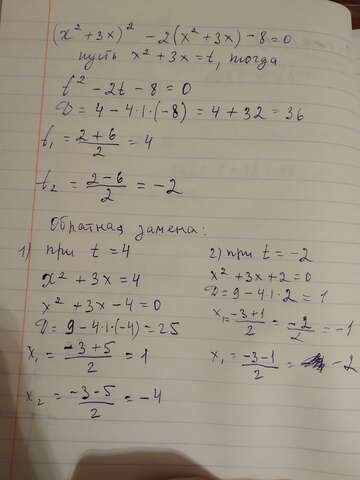 (x² + 3x)² - 2(x² + 3x) - 8 = 0
пусть x² + 3x = t, тогда
t² - 2t - 8 = 0
D = 4 - 4·1·(-8) = 4 + 32 = 36
t₁ = (2+6)/2 = 4
t₂ = (2-6)/2 = -2
Обратная замена:
1) при t = 4
x² + 3x = 4
x² + 3x - 4 = 0
D = 9 - 4·1·(-4) = 25
x₁ = (-3+5)/2 = 1
x₂ = (-3-5)/2 = -4
2) при t = -2
x² + 3x + 2 = 0
D = 9 - 4·1·2 = 1
x₁ = (-3+1)/2 = -2/2 = -1
x₁ = (-3-1)/2 = -2